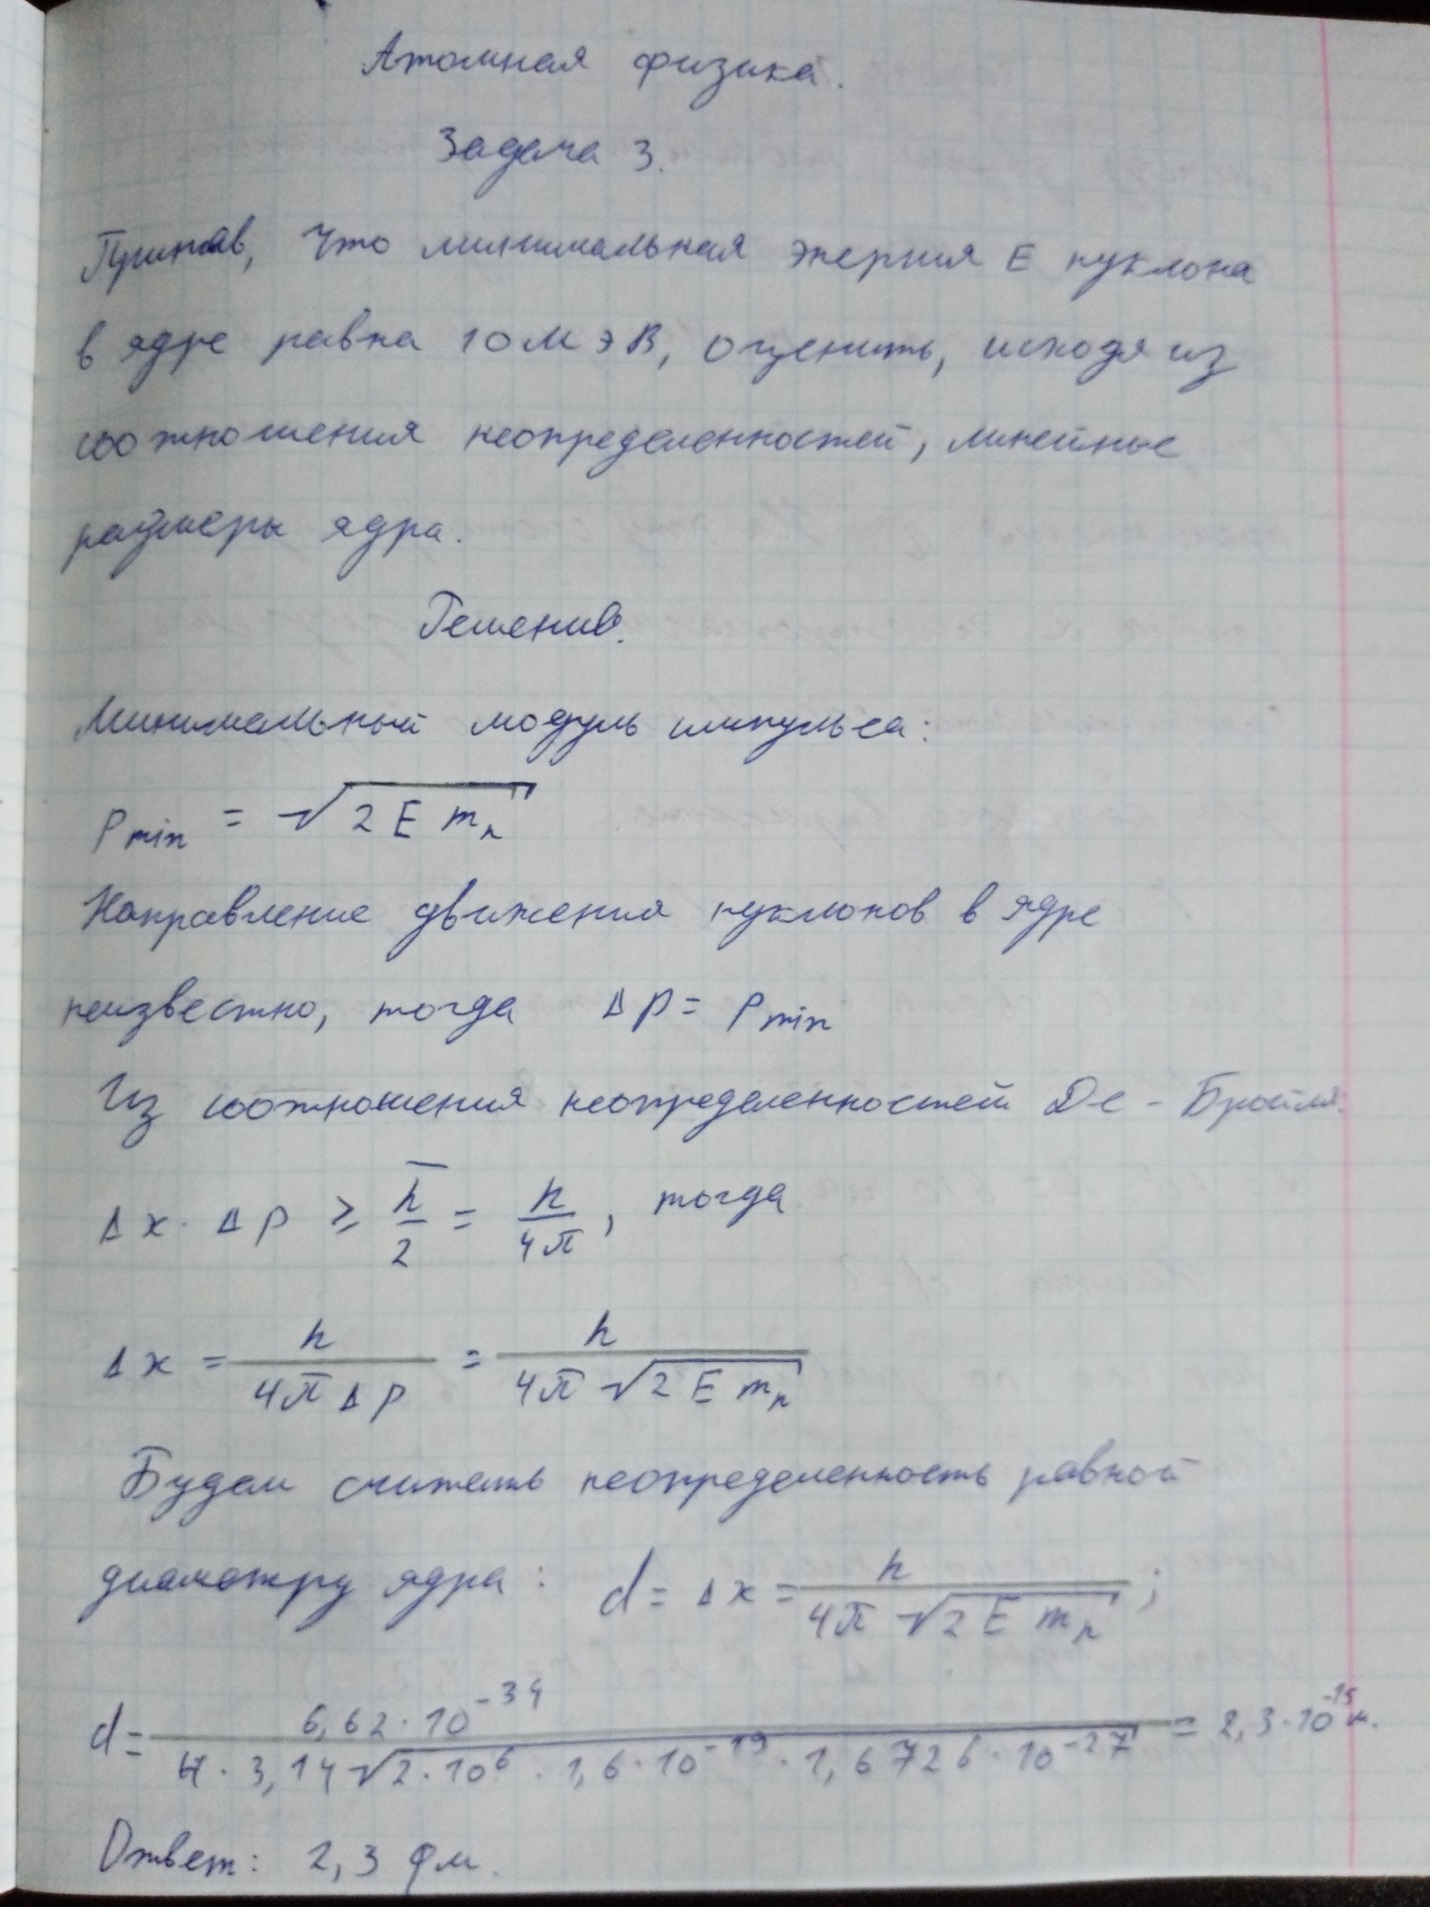 Атомная физика.
Задача 3.
Приняв, что минимальная энергия E нуклона
в ядре равна 10 МэВ, оценить, исходя из
соотношения неопределенностей, линейные
размеры ядра.
Решение.
Минимальный модуль импульса:
P_min = √(2 E m_n)
Направление движения нуклонов в ядре
неизвестно, тогда Δp = P_min
Из соотношения неопределенностей Де-Бройля:
Δx · Δp ≥ ħ/2 = h/4π, тогда
Δx = h/(4π Δp) = h/(4π √(2 E m_n))
Будем считать неопределенность равной
диаметру ядра: d = Δx = h/(4π √(2 E m_n));
d = 6,62·10^-34/(4·3,14 √(2·10^6·1,6·10^-19·1,6726·10^-27)) = 2,3·10^-15 м.
Ответ: 2,3 фм.